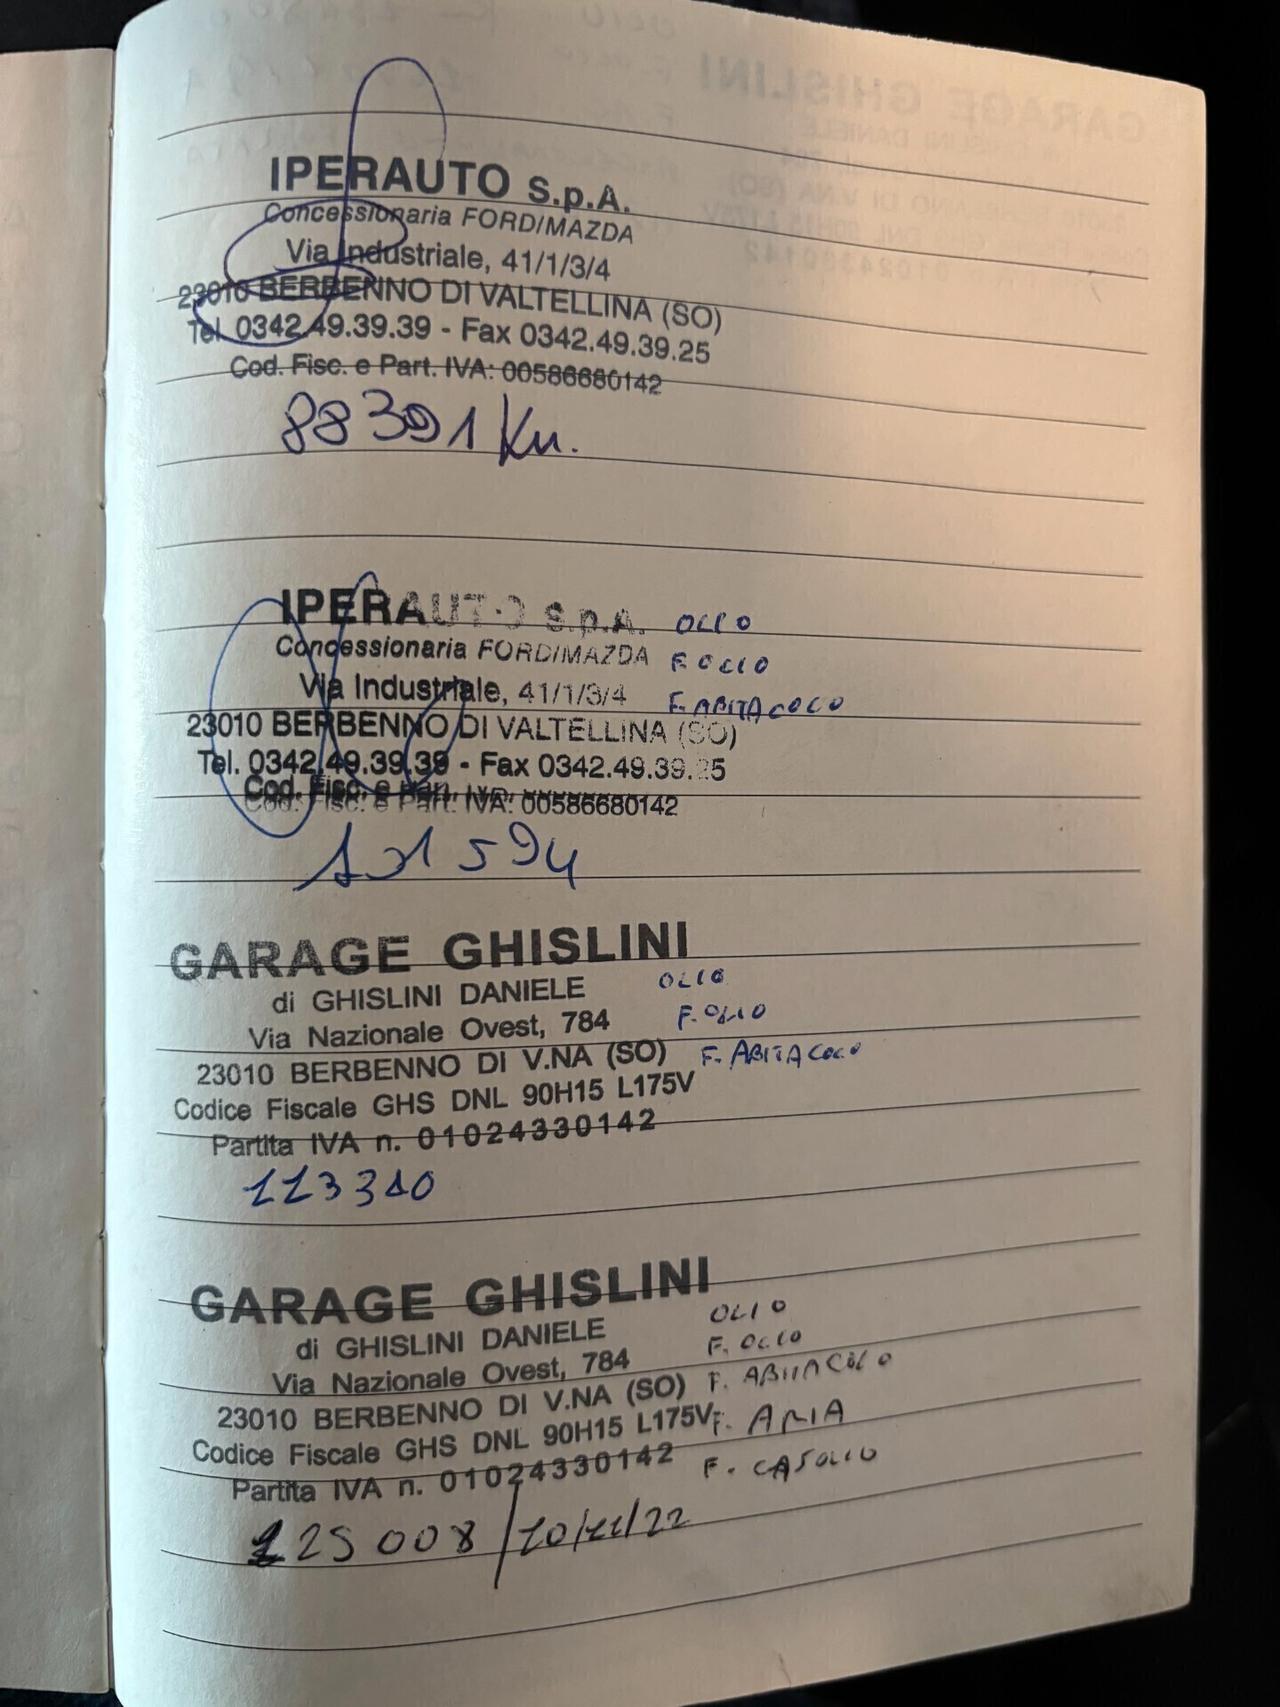 IPERAUTO S.p.A.
Concessionaria FORD/MAZDA
Via Industriale, 41/1/3/4
23010 BERBENNO DI VALTELLINA (SO)
Tel. 0342.49.39.39 - Fax 0342.49.39.25
Cod. Fisc. e Part. IVA: 00586680142
88391 Km.
IPERAUTO S.p.A. OLIO
Concessionaria FORD/MAZDA F. OLIO
Via Industriale, 41/1/3/4 F. ABITACOLO
23010 BERBENNO DI VALTELLINA (SO)
Tel. 0342.49.39.39 - Fax 0342.49.39.25
Cod. Fisc. e Part. IVA: 00586680142
101594
GARAGE GHISLINI
di GHISLINI DANIELE OLIO
Via Nazionale Ovest, 784 F. OLIO
23010 BERBENNO DI V.NA (SO) F. ABITACOLO
Codice Fiscale GHS DNL 90H15 L175V
Partita IVA n. 01024330142
113310
GARAGE GHISLINI
di GHISLINI DANIELE OLIO
Via Nazionale Ovest, 784 F. OLIO
23010 BERBENNO DI V.NA (SO) F. ABITACOLO
Codice Fiscale GHS DNL 90H15 L175V F. ARIA
Partita IVA n. 01024330142 F. GASOLIO
125008/10/11/22